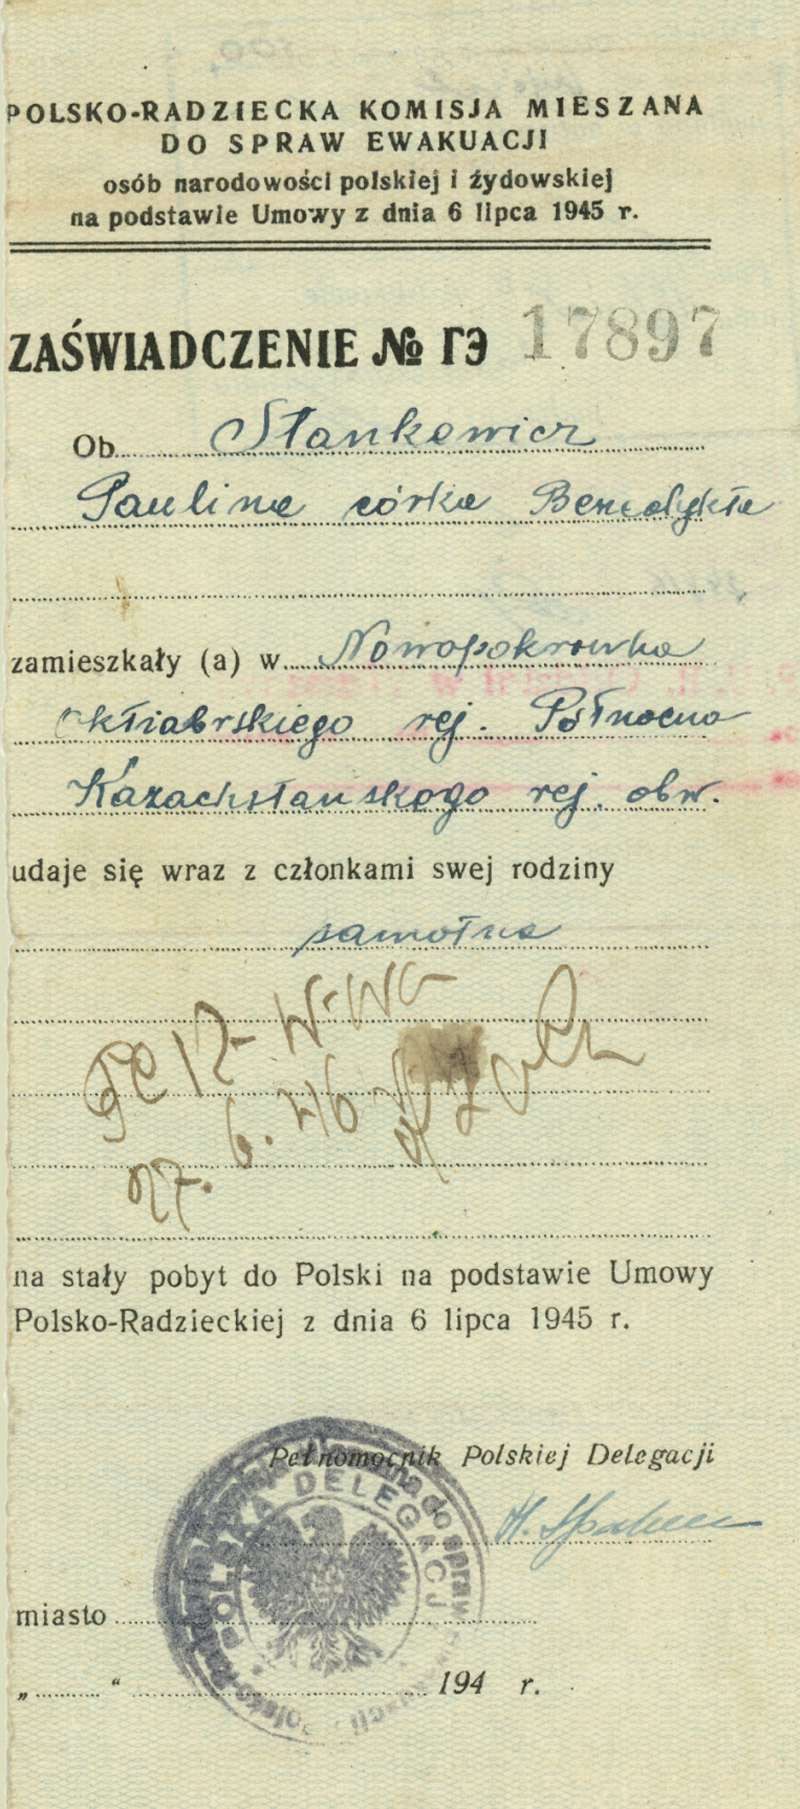 POLSKO-RADZIECKA KOMISJA MIESZANA
DO SPRAW EWAKUACJI
osób narodowości polskiej i żydowskiej
na podstawie Umowy z dnia 6 lipca 1945 r.
ZAŚWIADCZENIE № ГЭ 17897
Ob. Stankewicz
Paulina córka Benedykta
zamieszkały (a) w Nowopokrowka
Oktiabrskiego rej. Północno
Kazachstanskogo rej. obw.
udaje się wraz z członkami swej rodziny
samotna
27. 6. 46
na stały pobyt do Polski na podstawie Umowy
Polsko-Radzieckiej z dnia 6 lipca 1945 r.
Pełnomocnik Polskiej Delegacji
POLSKA DELEGACJ
do spraw
miasto
„ “ 194 r.